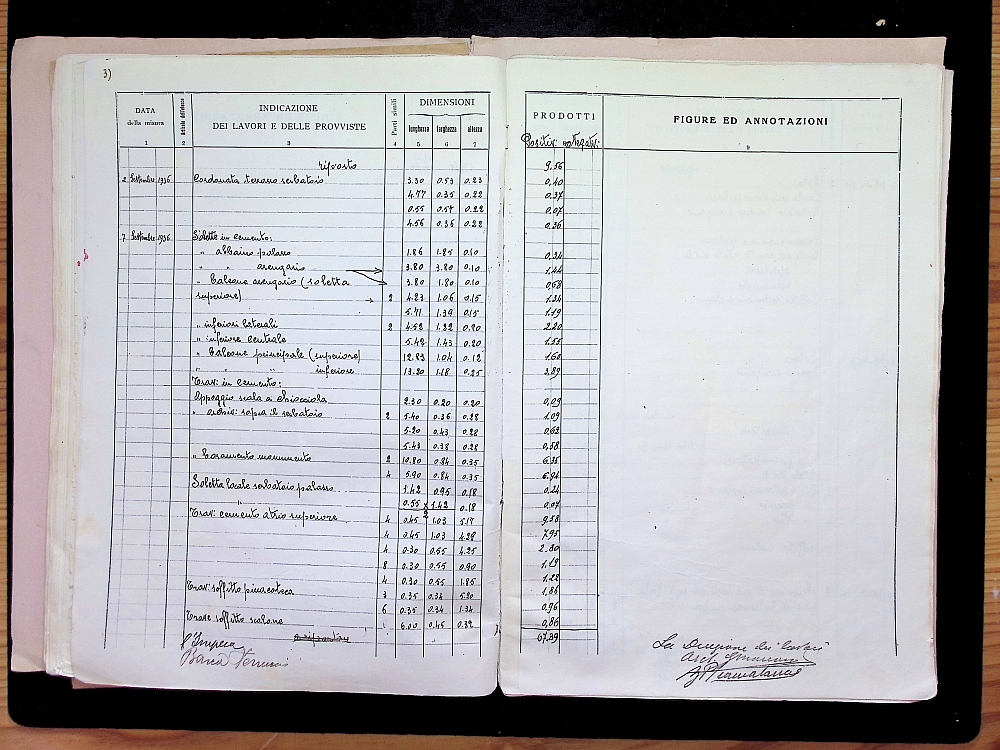 3)
DATA della misura | Articolo dell'elenco | INDICAZIONE DEI LAVORI E DELLE PROVVISTE | Parti simili | DIMENSIONI lunghezza larghezza altezza | PRODOTTI | FIGURE ED ANNOTAZIONI
1 2 3 4 5 6 7 9
Positivi Negativi
riporto 9.56
2 Settembre 1936 Cordonata terreno serbatoio 3.30 0.53 0.23 0,40
4.77 0.35 0.22 0,37
0.55 0.57 0.22 0,07
4.56 0.36 0.22 0,36
7 Settembre 1936 Solette in cemento:
" abbaino palazzo 1.86 1.85 0.10 0,34
" " arengario 3.80 3.80 0.10 1,44
" balcone arengario (soletta 3.80 1.80 0.10 0,68
superiore) 2 4.23 1.06 0.15 1.34
5.71 1.39 0.15 1.19
" inferiori laterali 2 4.52 1.22 0.20 2.20
" inferiore centrale 5.42 1.43 0.20 1.55
" balcone principale (superiore) 12.83 1.04 0.12 1.60
" " " inferiore 13.20 1.18 0.25 3,89
Travi in cemento:
Appoggio scala a chiocciola 2.30 0.20 0.20 0,09
" archivi sopra il serbatoio 2 5.40 0.36 0.28 1.09
5.20 0.43 0.28 0,62
5.43 0.38 0.28 0,58
" basamento monumento 2 10.80 0.84 0.35 6.35
4 5.90 0.84 0.35 6.94
Soletta locale serbatoio palazzo 1.42 0.95 0.18 0.24
0.55 x 1.42 2 0.18 0,07
Travi cemento atrio superiore 4 0.45 1.03 5.17 9.58
4 0.45 1.03 4.29 7,95
4 0.30 0.55 4.25 2.80
8 0.30 0.55 0.90 1,19
4 0.30 0.55 1.85 1,22
Travi soffitto pinacoteca 3 0.35 0.34 5.20 1,86
6 0.35 0.34 1.34 0,96
Trave soffitto scalone 1 6.00 0.45 0.32 0,86
a riportare 67.39
L'Impresa
Barca
La Direzione dei lavori